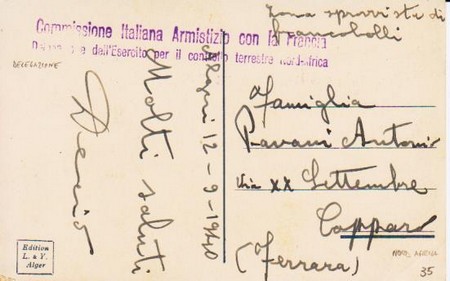 Zona sprovvista di
francobolli
Commissione Italiana Armistizio con la Francia
dell'Esercito per il controllo terrestre Nord-Africa
DELEGAZIONE
Algeri 12-9-1940
Molti saluti
Decio
Famiglia
Pavani Antonio
Via XX Settembre
Copparo
(Ferrara)
NORD AFRICA
35
Edition
L. & Y.
Alger